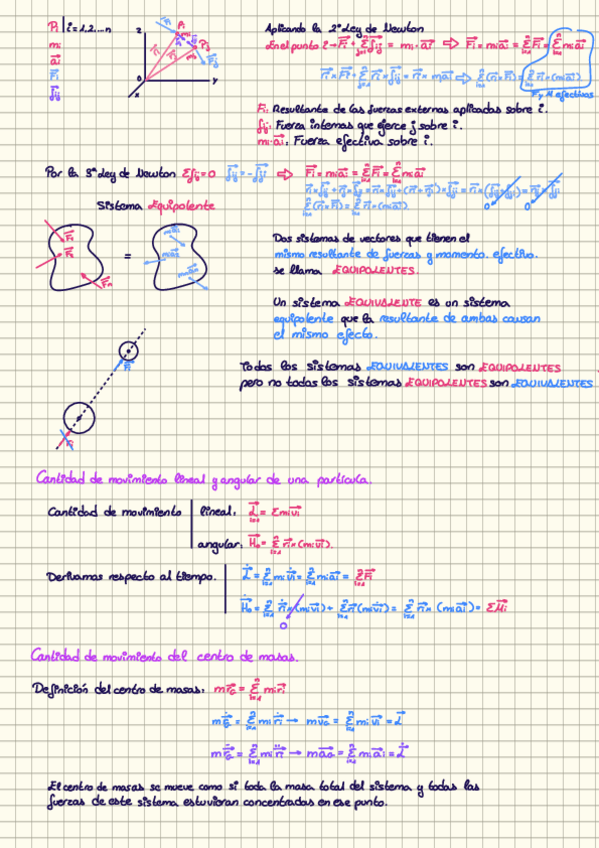 Pi | i=1,2,...n
mi
a⃗i
F⃗i
f⃗ij
z
y
x
0
Pi
Aplicando la 2ª Ley de Newton
En el punto i → F⃗i + Σ f⃗ij = mi · a⃗i ⇒ F⃗i = mi a⃗i = Σ F⃗i = Σ mi a⃗i
F y M efectivos
Fi: Resultante de las fuerzas externas aplicadas sobre i.
fij: Fuerza internas que ejerce j sobre i.
mi·ai: Fuerza efectiva sobre i.
Por la 3ª Ley de Newton Σfij=0 f⃗ij = -f⃗ji ⇒ F⃗i = mi a⃗i = Σ F⃗i = Σ mi a⃗i
Σ(r⃗i×F⃗i) = Σ r⃗i×(mi a⃗i)
0 0
Sistema Equipolente
=
Dos sistemas de vectores que tienen el
mismo resultante de fuerzas y momento. efectivo.
se llama EQUIPOLENTES.
Un sistema EQUIVALENTE es un sistema
equipolente que la resultante de ambas causan
el mismo efecto.
Todos los sistemas EQUIVALENTES son EQUIPOLENTES
pero no todos los sistemas EQUIPOLENTES son EQUIVALENTES
Cantidad de movimiento lineal y angular de una partícula.
Cantidad de movimiento | lineal: L⃗ = Σ mi v⃗i
angular: H⃗o = Σ r⃗i×(mi v⃗i).
Derivamos respecto al tiempo. | L⃗̇ = Σ mi v⃗̇i = Σ mi a⃗i = Σ F⃗i
H⃗̇o = Σ r⃗̇i×(mi v⃗i) + Σ r⃗i(mi v⃗̇i) = Σ r⃗i×(mi a⃗i) = Σ M⃗i
0
Cantidad de movimiento del centro de masas.
Definición del centro de masas: m r⃗G = Σ mi r⃗i
m r⃗̇G = Σ mi r⃗̇i → m v⃗G = Σ mi v⃗i = L⃗
m r⃗̈G = Σ mi r⃗̈i → m a⃗G = Σ mi a⃗i = L⃗̇
El centro de masas se mueve como si toda la masa total del sistema y todas las
fuerzas de este sistema estuvieran concentradas en ese punto.